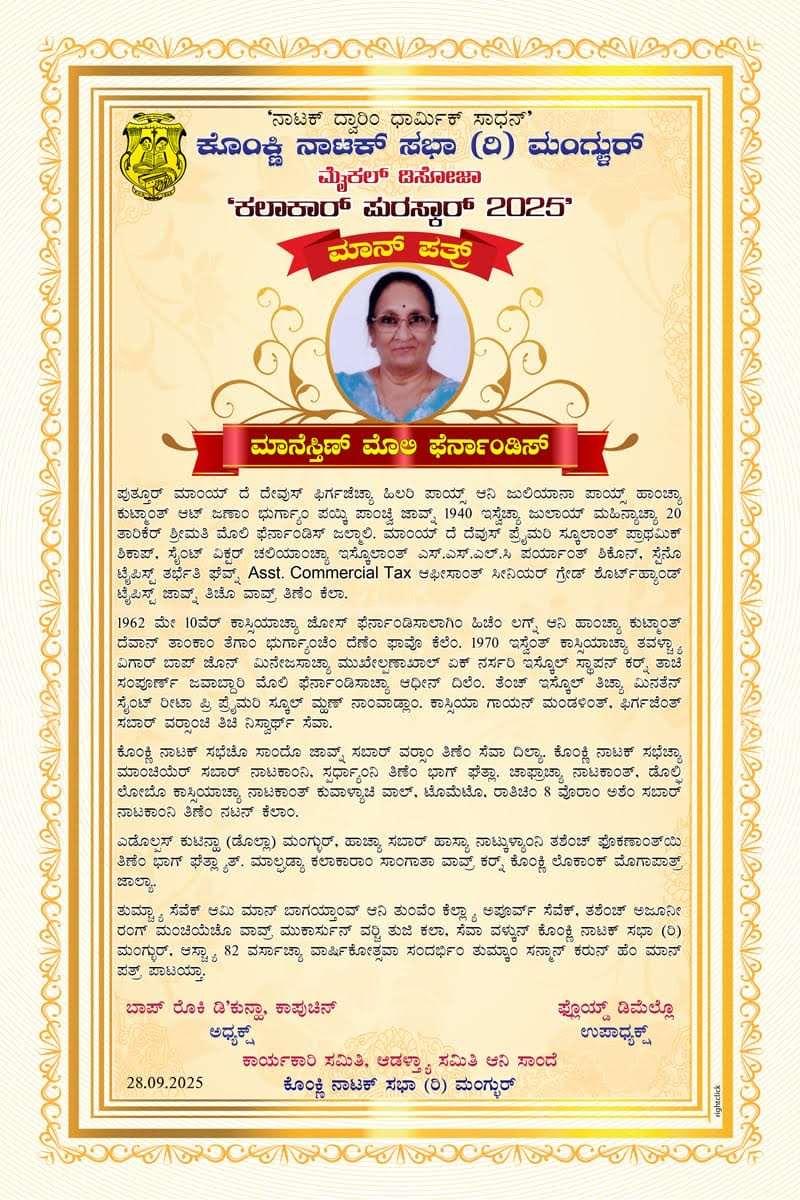 'ನಾಟಕ್ ದ್ವಾರಿಂ ಧಾರ್ಮಿಕ್ ಸಾಧನ್'
ಕೊಂಕ್ಣಿ ನಾಟಕ್ ಸಭಾ (ರಿ) ಮಂಗ್ಳುರ್
ಮೈಕಲ್ ಡಿಸೋಜಾ
'ಕಲಾಕಾರ್ ಪುರಸ್ಕಾರ್ 2025'
ಮಾನ್ ಪತ್ರ್
ಮಾನೆಸ್ತಿಣ್ ಮೊಲಿ ಫೆರ್ನಾಂಡಿಸ್
ಪುತ್ತೂರ್ ಮಾಂಯ್ ದೆ ದೇವುಸ್ ಫಿರ್ಗಜೆಚ್ಯಾ ಹಿಲರಿ ಪಾಯ್ಸ್ ಆನಿ ಜುಲಿಯಾನಾ ಪಾಯ್ಸ್ ಹಾಂಚ್ಯಾ
ಕುಟ್ಮಾಂತ್ ಆಟ್ ಜಣಾಂ ಭುರ್ಗ್ಯಾಂ ಪಯ್ಕಿ ಪಾಂಚ್ವಿ ಜಾವ್ನ್ 1940 ಇಸ್ವೆಚ್ಯಾ ಜುಲಾಯ್ ಮಹಿನ್ಯಾಚ್ಯಾ 20
ತಾರಿಕೆರ್ ಶ್ರೀಮತಿ ಮೊಲಿ ಫೆರ್ನಾಂಡಿಸ್ ಜಲ್ಮಾಲಿ. ಮಾಂಯ್ ದೆ ದೆವುಸ್ ಪ್ರೈಮರಿ ಸ್ಕೂಲಾಂತ್ ಪ್ರಾಥಮಿಕ್
ಶಿಕಾಪ್, ಸೈಂಟ್ ವಿಕ್ಟರ್ ಚಲಿಯಾಂಚ್ಯಾ ಇಸ್ಕೊಲಾಂತ್ ಎಸ್.ಎಸ್.ಎಲ್.ಸಿ ಪರ್ಯಾಂತ್ ಶಿಕೊನ್, ಸ್ಟೆನೊ
ಟೈಪಿಸ್ಟ್ ತರ್ಭೆತಿ ಘೆವ್ನ್ Asst. Commercial Tax ಆಫೀಸಾಂತ್ ಸೀನಿಯರ್ ಗ್ರೇಡ್ ಶೊರ್ಟ್‌ಹ್ಯಾಂಡ್
ಟೈಪಿಸ್ಟ್ ಜಾವ್ನ್ ತಿಚೊ ವಾವ್ರ್ ತಿಣೆಂ ಕೆಲಾ.
1962 ಮೇ 10ವೆರ್ ಕಾಸ್ಸಿಯಾಚ್ಯಾ ಜೋಸ್ ಫೆರ್ನಾಂಡಿಸಾಲಾಗಿಂ ಹಿಚೆಂ ಲಗ್ನ್ ಆನಿ ಹಾಂಚ್ಯಾ ಕುಟ್ಮಾಂತ್
ದೆವಾನ್ ತಾಂಕಾಂ ತೆಗಾಂ ಭುರ್ಗ್ಯಾಂಚೆಂ ದೆಣೆಂ ಫಾವೊ ಕೆಲೆಂ. 1970 ಇಸ್ವೆಂತ್ ಕಾಸ್ಸಿಯಾಚ್ಯಾ ತವಳ್ಚ್ಯಾ
ವಿಗಾರ್ ಬಾಪ್ ಜೊನ್ ಮಿನೇಜಸಾಚ್ಯಾ ಮುಖೇಲ್ಪಣಾಖಾಲ್ ಏಕ್ ನರ್ಸರಿ ಇಸ್ಕೊಲ್ ಸ್ಥಾಪನ್ ಕರ್ನ್ ತಾಚಿ
ಸಂಪೂರ್ಣ್ ಜವಾಬ್ದಾರಿ ಮೊಲಿ ಫೆರ್ನಾಂಡಿಸಾಚ್ಯಾ ಆಧೀನ್ ದಿಲೆಂ. ತೆಂಚ್ ಇಸ್ಕೊಲ್ ತಿಚ್ಯಾ ಮಿನತೆನ್
ಸೈಂಟ್ ರೀಟಾ ಪ್ರಿ ಪ್ರೈಮರಿ ಸ್ಕೂಲ್ ಮ್ಹಣ್ ನಾಂವಾಡ್ಲಾಂ. ಕಾಸ್ಸಿಯಾ ಗಾಯನ್ ಮಂಡಳಿಂತ್, ಫಿರ್ಗಜೆಂತ್
ಸಬಾರ್ ವರ್‍ಸಾಂಚಿ ತಿಚಿ ನಿಸ್ವಾರ್ಥ್ ಸೇವಾ.
ಕೊಂಕ್ಣಿ ನಾಟಕ್ ಸಭೆಚೊ ಸಾಂದೊ ಜಾವ್ನ್ ಸಬಾರ್ ವರ್‍ಸಾಂ ತಿಣೆಂ ಸೇವಾ ದಿಲ್ಯಾ. ಕೊಂಕ್ಣಿ ನಾಟಕ್ ಸಭೆಚ್ಯಾ
ಮಾಂಚಿಯೆರ್ ಸಬಾರ್ ನಾಟಕಾಂನಿ, ಸ್ಪರ್ಧ್ಯಾಂನಿ ತಿಣೆಂ ಭಾಗ್ ಘೆತ್ಲಾ. ಚಾಫ್ರಾಚ್ಯಾ ನಾಟಕಾಂತ್, ಡೊಲ್ಫಿ
ಲೋಬೊ ಕಾಸ್ಸಿಯಾಚ್ಯಾ ನಾಟಕಾಂತ್ ಕುವಾಳ್ಯಾಚಿ ವಾಲ್, ಟೊಮೆಟೊ, ರಾತಿಚಿಂ 8 ವೊರಾಂ ಅಶೆಂ ಸಬಾರ್
ನಾಟಕಾಂನಿ ತಿಣೆಂ ನಟನ್ ಕೆಲಾಂ.
ಎಡೊಲ್ಪಸ್ ಕುಟಿನ್ಹಾ (ಡೊಲ್ಲಾ) ಮಂಗ್ಳುರ್, ಹಾಚ್ಯಾ ಸಬಾರ್ ಹಾಸ್ಯಾ ನಾಟ್ಕುಳ್ಯಾಂನಿ ತಶೆಂಚ್ ಫೊಕಣಾಂತ್‌ಯಿ
ತಿಣೆಂ ಭಾಗ್ ಘೆತ್ಲ್ಯಾತ್. ಮಾಲ್ಘಡ್ಯಾ ಕಲಾಕಾರಾಂ ಸಾಂಗಾತಾ ವಾವ್ರ್ ಕರ್ನ್ ಕೊಂಕ್ಣಿ ಲೊಕಾಂಕ್ ಮೊಗಾಪಾತ್ರ್
ಜಾಲ್ಯಾ.
ತುಮ್ಚ್ಯಾ ಸೆವೆಕ್ ಆಮಿ ಮಾನ್ ಬಾಗಯ್ತಾಂವ್ ಆನಿ ತುಂವೆಂ ಕೆಲ್ಲ್ಯಾ ಅಪೂರ್ವ್ ಸೆವೆಕ್, ತಶೆಂಚ್ ಅಜೂನೀ
ರಂಗ್ ಮಂಚಿಯೆಚೊ ವಾವ್ರ್ ಮುಕಾರ್ಸುನ್ ವರ್‍ಚಿ ತುಜಿ ಕಲಾ, ಸೆವಾ ವಳ್ಕುನ್ ಕೊಂಕ್ಣಿ ನಾಟಕ್ ಸಭಾ (ರಿ)
ಮಂಗ್ಳುರ್, ಆಸ್ಚ್ಯಾ 82 ವರ್ಸಾಚ್ಯಾ ವಾರ್ಷಿಕೋತ್ಸವಾ ಸಂದರ್ಭಿಂ ತುಮ್ಕಾಂ ಸನ್ಮಾನ್ ಕರುನ್ ಹೆಂ ಮಾನ್
ಪತ್ರ್ ಪಾಟಯ್ತಾ.
ಬಾಪ್ ರೊಕಿ ಡಿ'ಕುನ್ಹಾ, ಕಾಪುಚಿನ್
ಅಧ್ಯಕ್ಷ್
ಫ್ಲೊಯ್ಡ್ ಡಿಮೆಲ್ಲೊ
ಉಪಾಧ್ಯಕ್ಷ್
ಕಾರ್ಯಕಾರಿ ಸಮಿತಿ, ಆಡಳ್ತ್ಯಾ ಸಮಿತಿ ಆನಿ ಸಾಂದೆ
28.09.2025
ಕೊಂಕ್ಣಿ ನಾಟಕ್ ಸಭಾ (ರಿ) ಮಂಗ್ಳುರ್
rightclick